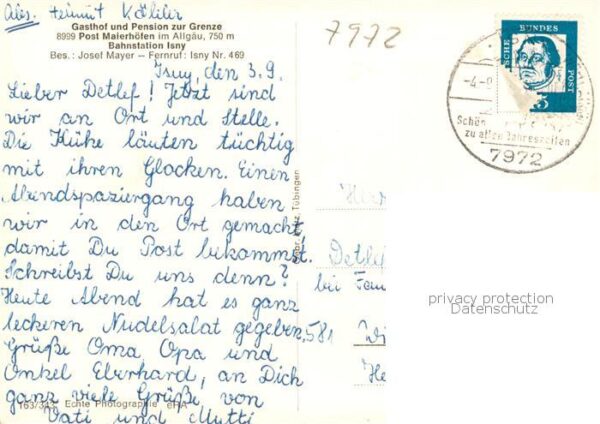 Abs. Helmut Köhler
Gasthof und Pension zur Grenze
8999 Post Maierhöfen im Allgäu, 750 m
Bahnstation Isny
Bes.: Josef Mayer – Fernruf: Isny Nr. 469
7972
Isny, den 3.9.
Lieber Detlef! Jetzt sind
wir an Ort und Stelle.
Die Kühe läuten tüchtig
mit ihren Glocken. Einen
Abendspaziergang haben
wir in den Ort gemacht,
damit Du Post bekommst.
Schreibst Du uns denn?
Heute Abend hat es ganz
leckeren Nudelsalat gegeben.
Grüße Oma, Opa und
Onkel Eberhard, an Dich
ganz viele Grüße von
Vati und Mutti
163/343 Echte Photographie
Tübingen
Detlef
bei Fam
581 Wi
DEUTSCHE BUNDESPOST
5
Schön
zu allen Jahreszeiten
7972
privacy protection
Datenschutz